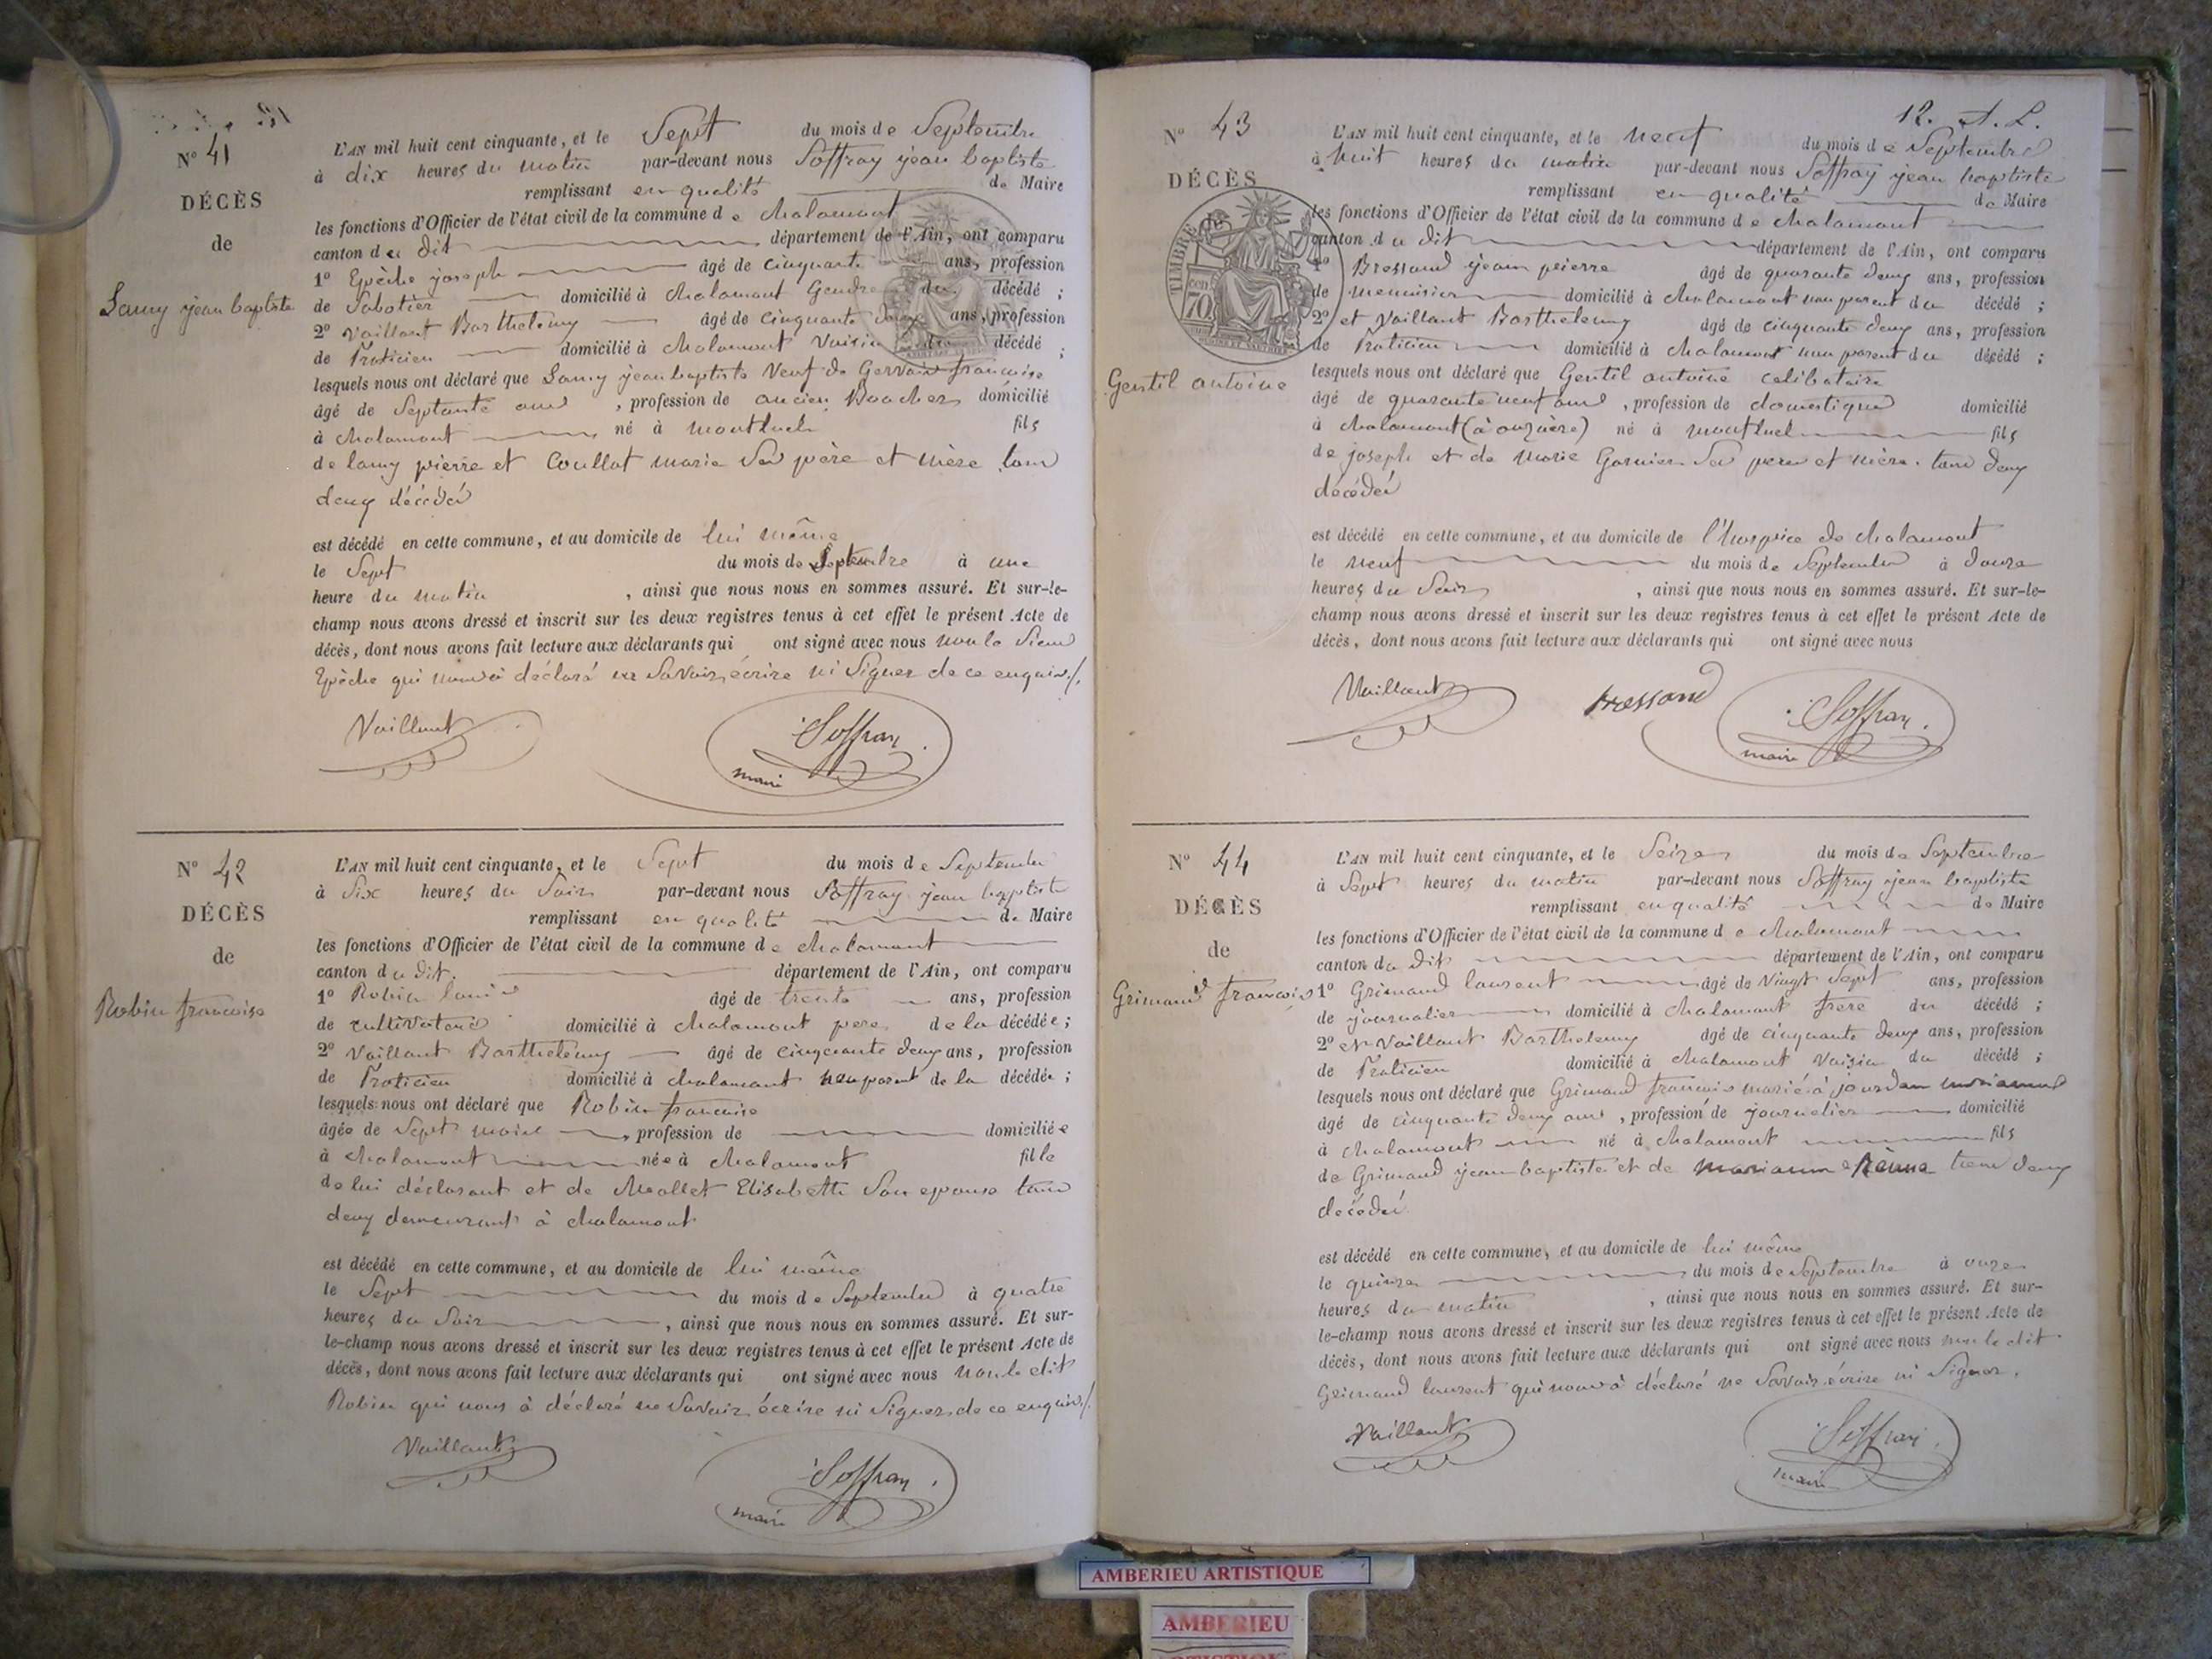 N° 41
DÉCÈS
de
Lamy jean baptiste
L'AN mil huit cent cinquante, et le Sept du mois de Septembre
à dix heures du matin par-devant nous Soffray jean baptiste
remplissant en qualité de Maire
les fonctions d'Officier de l'état civil de la commune de chalamont
canton du dit département de l'Ain, ont comparu
1° Epèche joseph âgé de cinquante ans, profession
de Sabotier domicilié à chalamont Gendre du décédé ;
2° Vaillant Barthelemy âgé de cinquante deux ans, profession
de Praticien domicilié à chalamont Voisin du décédé ;
lesquels nous ont déclaré que Lamy jean baptiste Veuf de Gervais francoise
âgé de Septante ans , profession de ancien Boucher domicilié
à chalamont né à montluel fils
de lamy pierre et Coullat marie Ses père et mère tous
deux décédés
est décédé en cette commune, et au domicile de lui même
le Sept du mois de Septembre à une
heure du matin , ainsi que nous nous en sommes assuré. Et sur-le-
champ nous avons dressé et inscrit sur les deux registres tenus à cet effet le présent Acte de
décès, dont nous avons fait lecture aux déclarants qui ont signé avec nous non le Sieur
Epèche qui nous à déclaré ne Savoir écrire ni Signer de ce enquis /.
Vaillant
Soffray
maire
N° 42
DÉCÈS
de
Robin francoise
L'AN mil huit cent cinquante, et le Sept du mois de Septembre
à Six heures du Soir par-devant nous Soffray jean baptiste
remplissant en qualité de Maire
les fonctions d'Officier de l'état civil de la commune de chalamont
canton du dit. département de l'Ain, ont comparu
1° Robin louis âgé de trente ans, profession
de cultivateur domicilié à chalamont pere de la décédée ;
2° Vaillant Barthelemy âgé de cinquante deux ans, profession
de Praticien domicilié à chalamont non parent de la décédée ;
lesquels nous ont déclaré que Robin francoise
âgée de Sept mois , profession de domiciliée
à chalamont née à chalamont fille
de lui déclarant et de Mollet Elisabeth Son epouse tous
deux demeurant à chalamont
est décédé en cette commune, et au domicile de lui même
le Sept du mois de Septembre à quatre
heures du Soir , ainsi que nous nous en sommes assuré. Et sur-
le-champ nous avons dressé et inscrit sur les deux registres tenus à cet effet le présent Acte de
décès, dont nous avons fait lecture aux déclarants qui ont signé avec nous non le dit
Robin qui nous à déclaré ne Savoir écrire ni Signer de ce enquis /.
Vaillant
Soffray
maire
12. A. L.
N° 43
DÉCÈS
de
TIMBRE
70
Gentil antoine
L'AN mil huit cent cinquante, et le neuf du mois de Septembre
à huit heures du matin par-devant nous Soffray jean baptiste
remplissant en qualité de Maire
les fonctions d'Officier de l'état civil de la commune de chalamont
canton du dit département de l'Ain, ont comparu
1° Bressand jean pierre âgé de quarante deux ans, profession
de menuisier domicilié à chalamont non parent du décédé ;
2° et Vaillant Barthelemy âgé de cinquante deux ans, profession
de Praticien domicilié à chalamont non parent du décédé ;
lesquels nous ont déclaré que Gentil antoine celibataire
âgé de quarante neuf ans , profession de domestique domicilié
à chalamont (à ouzière) né à montluel fils
de joseph et de Marie Garnier Ses pere et mère. tous deux
décédés
est décédé en cette commune, et au domicile de l'hospice de chalamont
le neuf du mois de Septembre à douze
heures du Soir , ainsi que nous nous en sommes assuré. Et sur-le-
champ nous avons dressé et inscrit sur les deux registres tenus à cet effet le présent Acte de
décès, dont nous avons fait lecture aux déclarants qui ont signé avec nous
Vaillant
Bressand
Soffray
maire
N° 44
DÉCÈS
de
Grimand francois
L'AN mil huit cent cinquante, et le Seize du mois de Septembre
à Sept heures du matin par-devant nous Soffray jean baptiste
remplissant en qualité de Maire
les fonctions d'Officier de l'état civil de la commune de chalamont
canton du dit département de l'Ain, ont comparu
1° Grimand laurent âgé de Vingt Sept ans, profession
de journalier domicilié à chalamont frere du décédé ;
2° et Vaillant Barthelemy âgé de cinquante deux ans, profession
de Praticien domicilié à chalamont Voisin du décédé ;
lesquels nous ont déclaré que Grimand francois marié à jourdan marianne
âgé de cinquante deux ans , profession de journalier domicilié
à chalamont né à chalamont fils
de Grimand jean baptiste et de marianne tous deux
décédés.
est décédé en cette commune, et au domicile de lui même
le quinze du mois de Septembre à onze
heures du matin , ainsi que nous nous en sommes assuré. Et sur-
le-champ nous avons dressé et inscrit sur les deux registres tenus à cet effet le présent Acte de
décès, dont nous avons fait lecture aux déclarants qui ont signé avec nous non le dit
Grimand laurent qui nous à déclaré ne Savoir écrire ni Signer.
Vaillant
Soffray
maire
AMBERIEU ARTISTIQUE
AMBERIEU